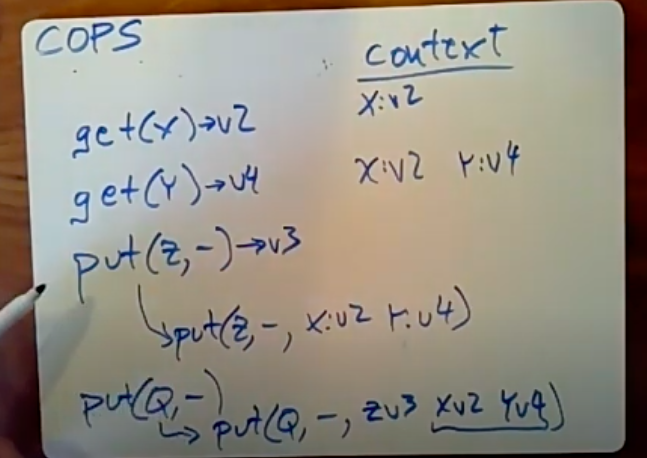 COPS
context
get(x)→v2 x:v2
get(Y)→v4 x:v2 Y:v4
put(z,-)→v3
put(z,-, x:v2 Y:v4)
put(Q,-)
put(Q,-, zv3 xv2 Yv4)